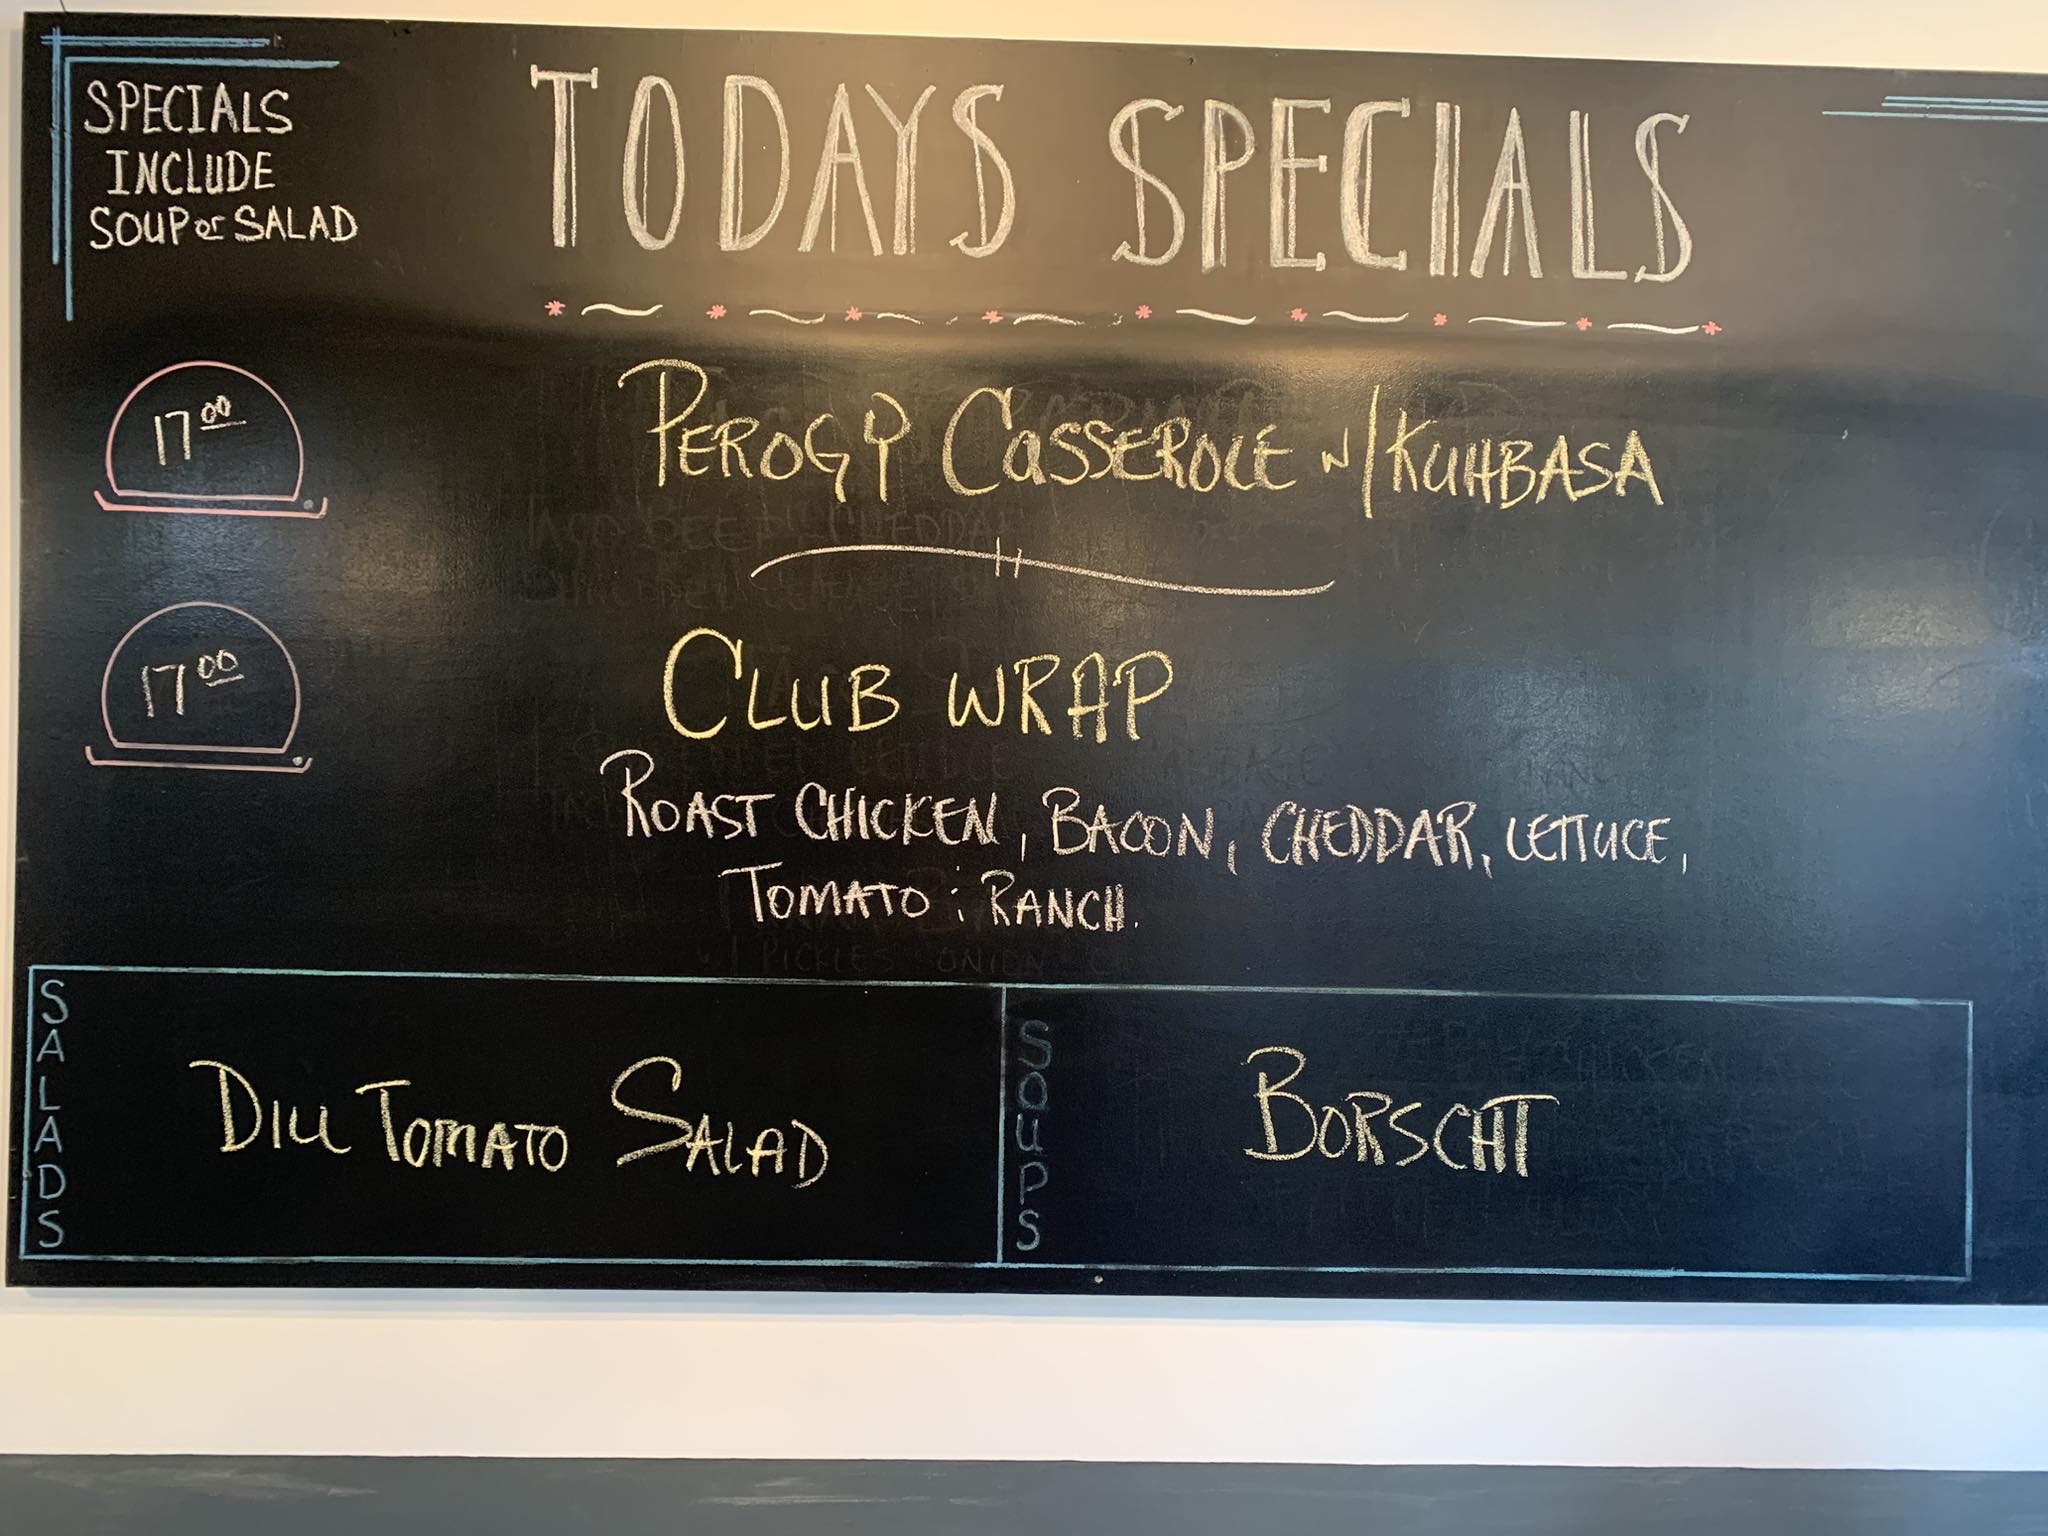 SPECIALS
INCLUDE
SOUP or SALAD
TODAYS SPECIALS
17.00
PEROGY CASSEROLE w/KUHBASA
17.00
CLUB WRAP
ROAST CHICKEN, BACON, CHEDDAR, LETTUCE,
TOMATO : RANCH.
w/ PICKLES ONION
SALADS
DILL TOMATO SALAD
SOUPS
BORSCHT